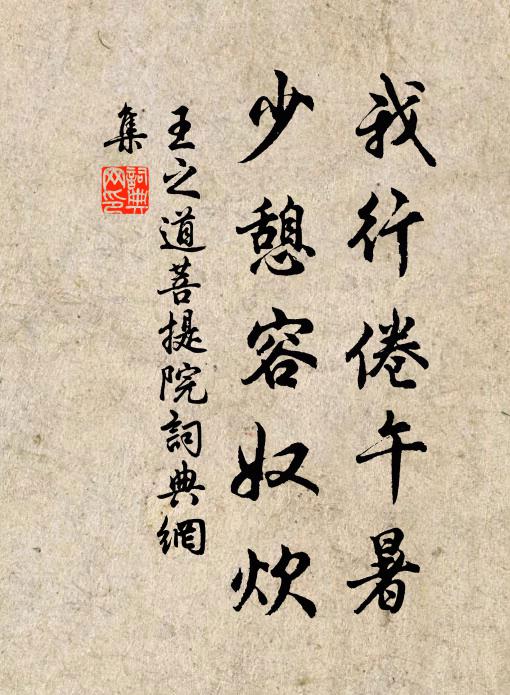 我行倦午暑
少憩容奴炊
王之道菩提院詞典網
集
詞典
网印